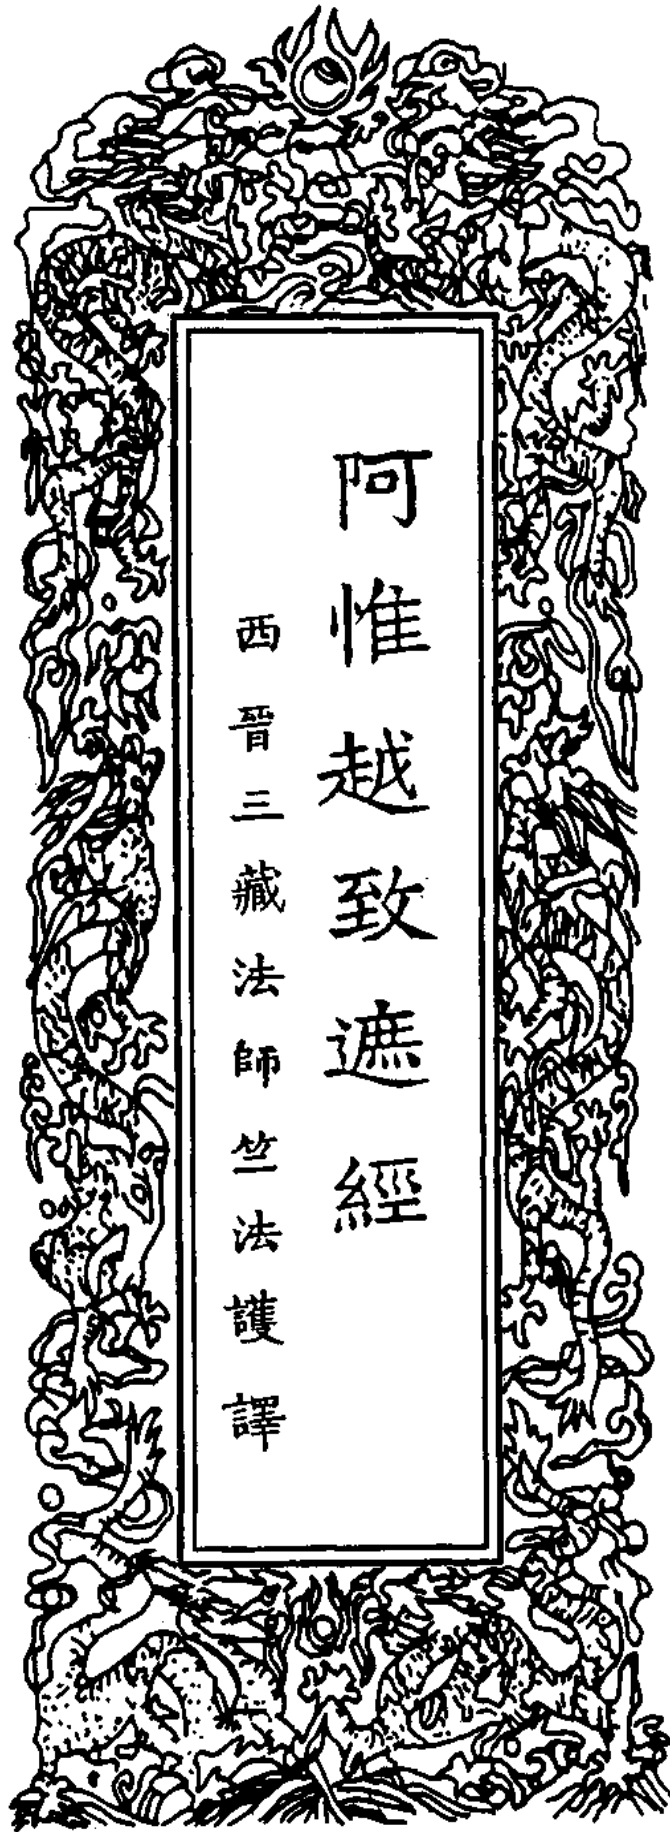 阿惟越致遮經
西晉三藏法師竺法護譯